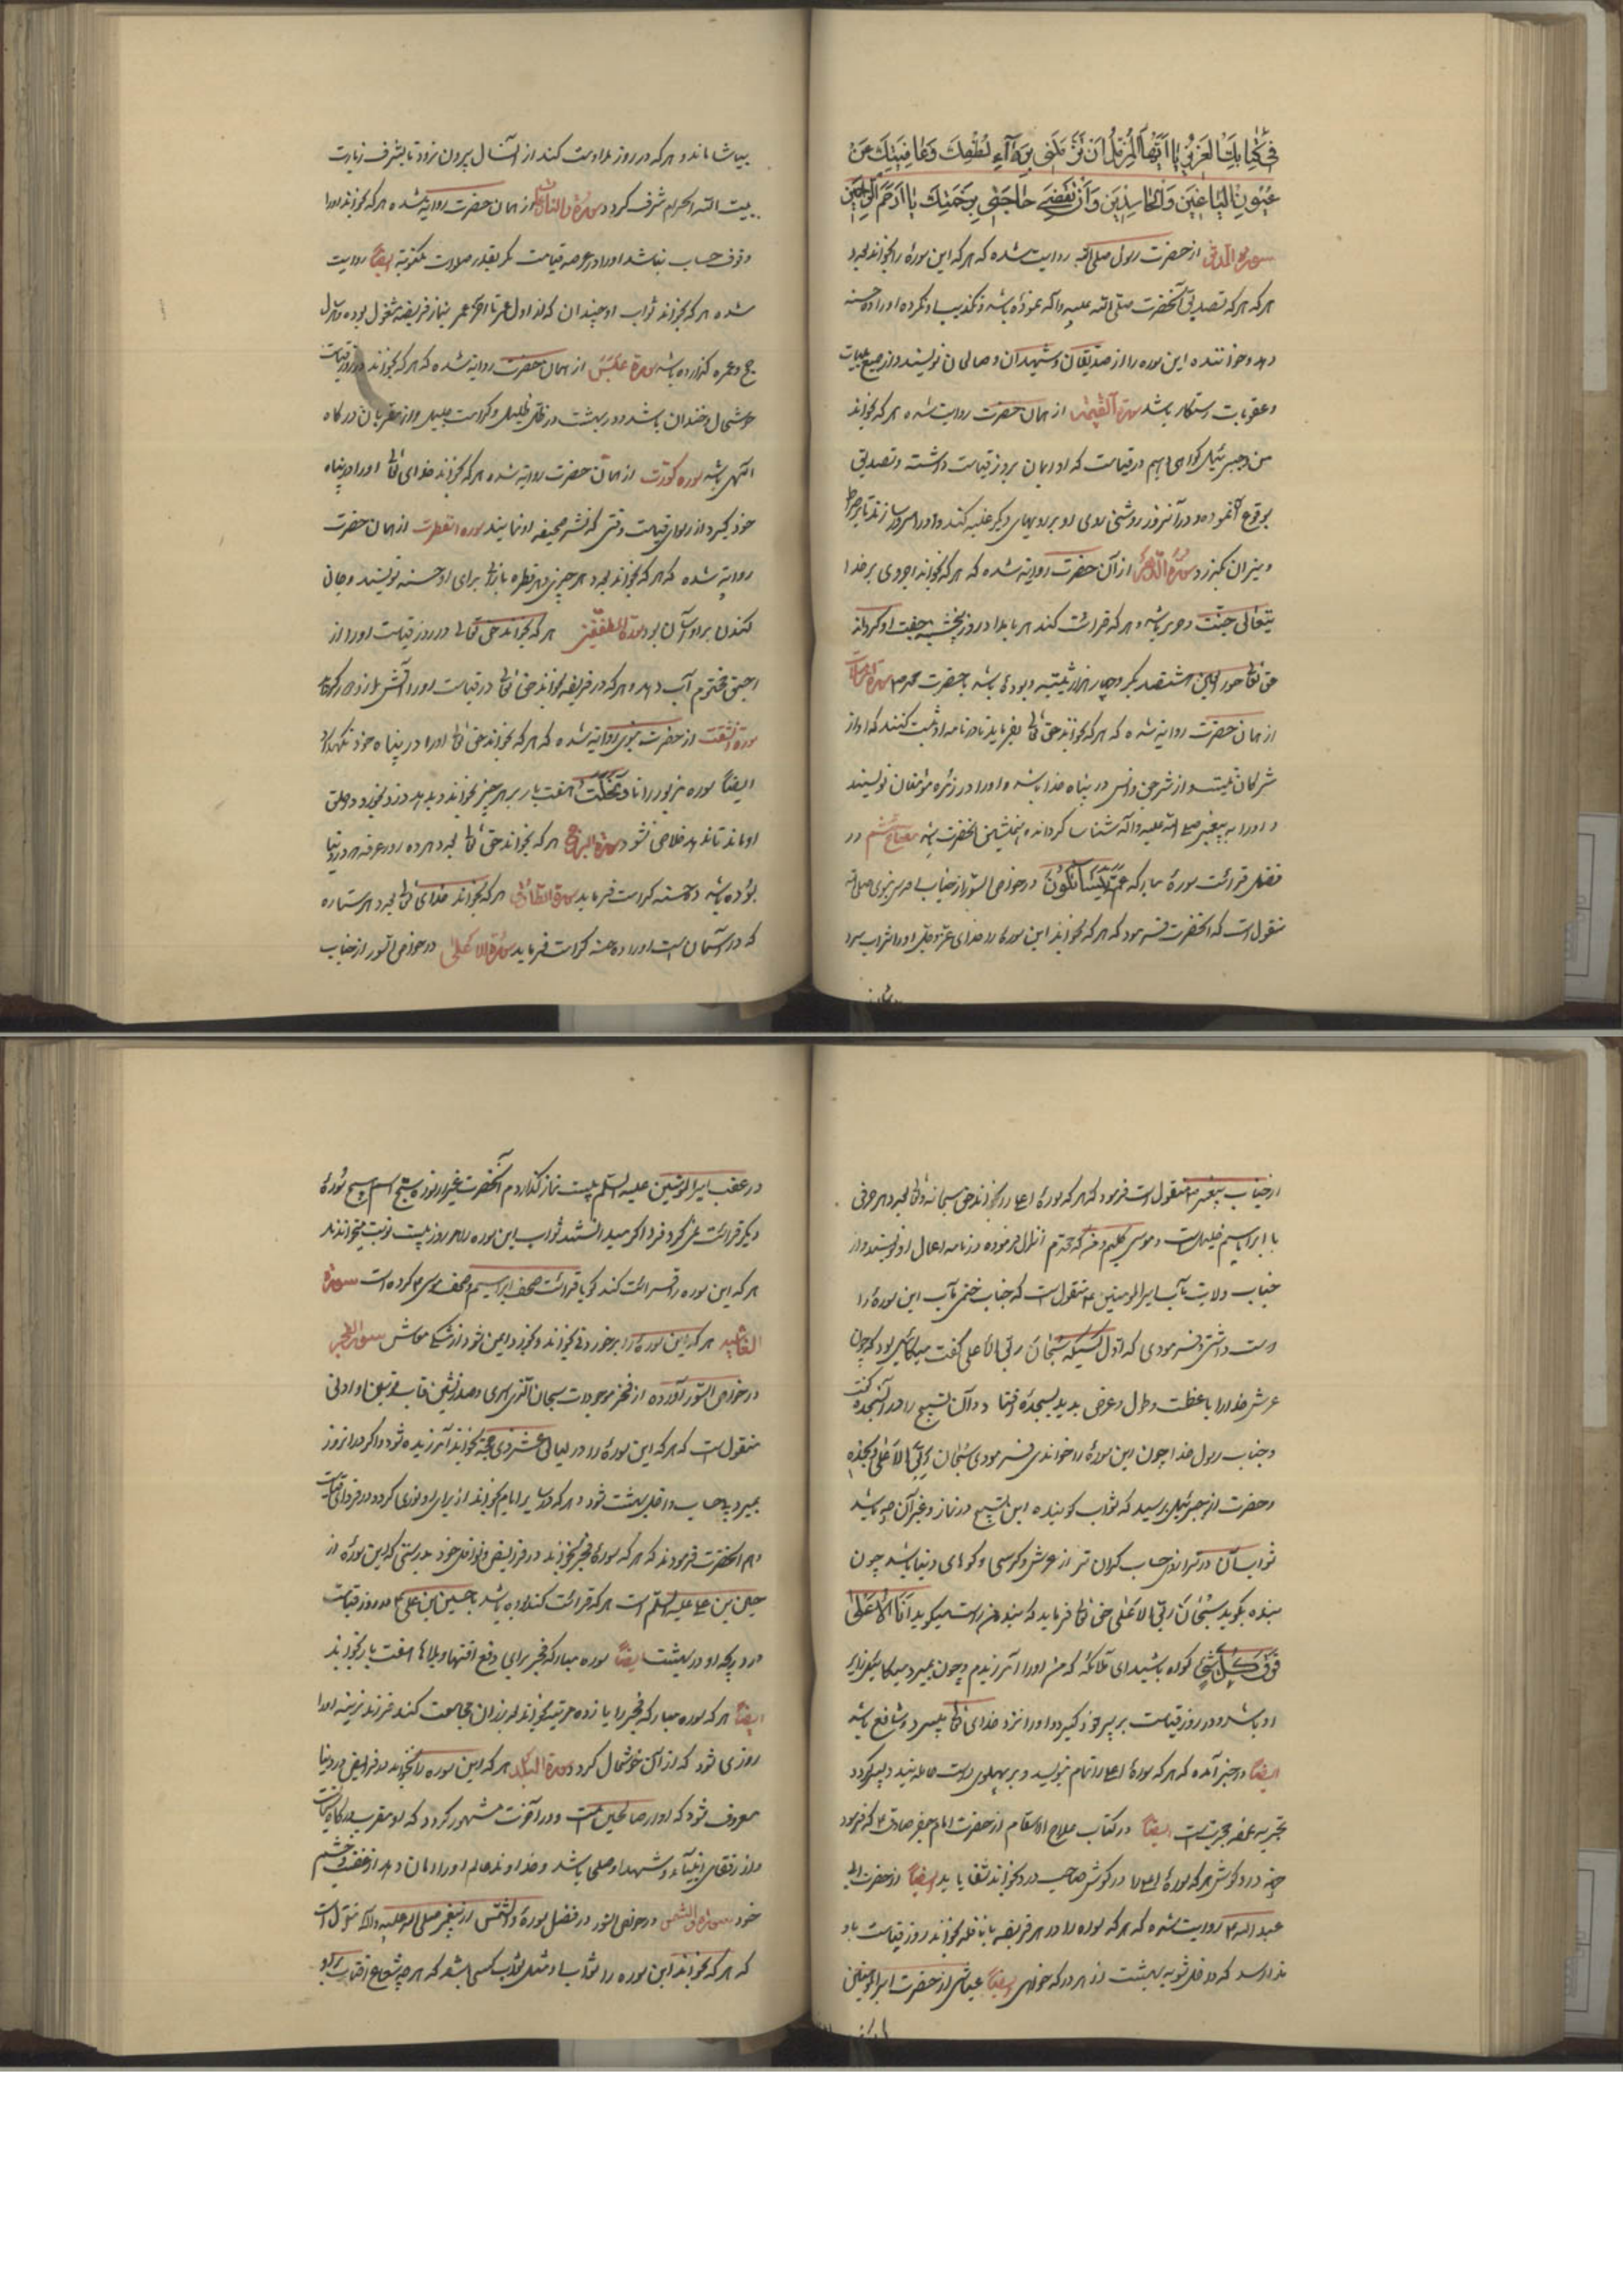 فی کتابك العزیز یا ایها المزمل ان تزملنی برداء لطفك وعافیتك عن
عیون الباغین والحاسدین وان تقضی حاجتی برحمتك یا ارحم الراحمین
سوره المدثر از حضرت رسول صلی الله روایت شده که هر که این سوره را بخواند بعدد
هر که تصدیق آنحضرت صلی الله علیه وآله نموده باشد و تکذیب او نکرده او را ده حسنه
دهد و خواننده این سوره را از صدیقان و شهیدان و صالحان نویسند و از جمیع
وعقوبات رستگار باشد سورة القیمة از همان حضرت روایت شده هر که بخواند
من و جبرئیل گواهی دهیم در قیامت که او ایمان بروز قیامت داشته و تصدیق
بوقوع آن نموده و در آنروز روشنی روی او بر رویهای دیگر غلبه کند
ومیزان بگذرد سورة الدهر از آن حضرت روایت شده که هر که بخواند اجر وی بر خدا
یتعالی جنت و حریر باشد و هر که قرائت کند هر بامداد روز پنجشنبه جفت او گرداند
حق تعالی حور العین هشتصد بکر و چهار هزار ثیبه و بوده باشد با حضرت محمد ص سورة المرسلات
از همان حضرت روایت شده که هر که بخواند حق تعالی بفرماید تا در نامه او ثبت کنند که او از
مشرکان نیست و از شر جن و انس در پناه خدا باشد و او را در زمره مؤمنان نویسند
و او را به پیغمبر صلی الله علیه وآله شناسا گرداند و همنشین آنحضرت باشد مفتاح ششم در
فضل قرائت سورهٔ مبارکه عم یتسائلون در خواص السور از جناب اقدس نبوی صلی الله
منقولست که آنحضرت فرمود که هر که بخواند این سوره را خدای عز وجل او را شراب سرد
بیاشاماند و هر که در روز مداومت کند از آنسال بیرون نرود تا بشرف زیارت
بیت الله الحرام مشرف گردد سورة والنازعات از همان حضرت روایت شده هر که بخواند او را
وقوف حساب نباشد او را در عرصه قیامت مگر بقدر صلوات مکتوبة ایضاً روایت
شده هر که بخواند ثواب او چندان که از اول عمر تا آخر عمر بنماز فریضه مشغول بوده و هر سال
حج و عمره گذارده باشد سورة عبس از همان حضرت روایت شده که هر که بخواند در روز قیامت
خوشحال و خندان باشد و در بهشت در ظل ظلیل و کرامت جلیل و از مقربان درگاه
الهی باشد سوره کورت از همان حضرت روایت شده هر که بخواند خدای تعالی او را در پناه
خود گیرد از رسوای قیامت وقتی که نشر صحیفه او نمایند سوره انفطرت از همان حضرت
روایت شده که هر که بخواند بعدد هر چیزی و هر قطره باران برای او حسنه نویسند و جان
کندن بر او آسان بود سورة المطففین هر که بخواند حق تعالی در روز قیامت او را از
رحیق مختوم آب دهد و هر که در فریضه بخواند حق تعالی در قیامت او را از آتش
سورة انشقت از حضرت نبوی روایت شده که هر که بخواند حق تعالی او را در پناه خود نگهدارد
ایضاً سوره مزبور را تا وتخلت هفت بار بر هر چیز بخواند و بدهد دزد بخورد در حلق
او بماند تا ندهد خلاص نشود سورة البروج هر که بخواند حق تعالی بعدد هر روز عرفه هر در دنیا
بوده باشد ده حسنه کرامت فرماید سورة الطارق هر که بخواند خدای تعالی بعدد هر ستاره
که در آسمان است او را ده حسنه کرامت فرماید سورة الاعلی در خواص السور از جناب
از جناب پیغمبر ص منقول است فرمود که هر که سورهٔ اعلی را بخواند حق سبحانه و تعالی بعدد هر حرفی
با ابراهیم خلیل است و موسی کلیم و من که محمدم انزال فرموده در نامه اعمال او نویسد و از
جناب ولایت مآب امیرالمومنین ع منقول است که جناب ختمی مآب این سورهٔ را
دوست داشتی و فرمودی که اول کسیکه سبحان ربی الاعلی گفت میکائیل بود که چون
عرش خدا را با عظمت و طول و عرض بدید بسجده افتاد و آن تسبیح را در آنسجده گفت
و جناب رسول خدا چون این سورهٔ را خواندی فرمودی سبحان ربی الاعلی وبحمده
وحضرت از جبرئیل پرسید که ثواب گوینده این تسبیح در نماز و غیر آن چه باشد
ثواب آن در ترازوی حساب گران تر از عرش و کرسی و کوهای دنیا باشد چون
بنده بگوید سبحان ربی الاعلی حق تعالی فرماید که بنده من راست میگوید انا الاعلی
فوق کل شیء گواه باشید ای ملائکه که من او را آمرزیدم و چون بمیرد میکائیل زایر
او باشد و در روز قیامت بر پر خود گیرد و او را نزد خدای تعالی ببرد و شافع باشد
ایضاً در خبر آمده که هر که سورهٔ اعلی را تمام بنویسد و بر پهلوی راست حامله بندد پسر گردد
بتجربه عمه مجربست ایضاً در کتاب علاج الاسقام از حضرت امام جعفر صادق ع که فرمود
جهة درد گوش هر که سورهٔ اعلی را در گوش صاحب درد بخواند شفا یابد ایضاً از حضرت ابی
عبد الله ع روایت شده که هر که سوره را در هر فریضه یا نافله بخواند روز قیامت باو
ندا رسد که داخل شو به بهشت از هر در که خواهی ایضاً عیاشی از حضرت امیرالمومنین
در عقب امیرالمومنین علیه السلم بیست نماز گذاردم آنحضرت غیر از سوره سبح اسم هیچ سورهٔ
دیگر قرائت نمی کرد فرد اگر میدانستند ثواب این سوره را هر روز بیست نوبت میخواندند
هر که این سوره را قرائت کند گویا قرائت صحف ابراهیم و صحف موسی کرده است سورة
الغاشیه هر که این سوره را بر خوردنی بخواند و بخورد ایمن شود از شکم معاش سورة الفجر
در خواص السور آورده از فخر موجودات سبحان الذی اسری و صدر نشین قاب قوسین او ادنی
منقول است که هر که این سورهٔ را در لیالی عشر ذی حجة بخواند آمرزیده شود و اگر در انروز
بمیرد بیحساب داخل بهشت شود و هر که در سایر ایام بخواند از برای او نوری گردد در فردای قیامت
وهم آنحضرت فرمودند که هر که سورهٔ فجر بخواند در فرایض و نوافل خود بدرستی که این سورهٔ از
حسین بن علی علیه السلم است هر که قرائت کند او بوده باشد با حسین بن علی ع در روز قیامت
در درجه او در بهشت ایضاً سوره مبارکه فجر برای دفع آفتها و بلاها هفت بار بخواند
ایضاً هر که سوره مبارکه فجر را یازده مرتبه بخواند و با زنان مجامعت کند فرزند نرینه او را
روزی شود که از آن خوشحال گردد سورة البلد هر که این سوره را بخواند در فرایض در دنیا
معروف شود که او از صالحین است و در آخرت مشهور گردد که او مقرب درگاه
و از رفقای انبیاء و شهدا و صلحا باشد و خداوند عالم او را امان دهد از غضب و خشم
خود سوره والشمس در خواص السور در فضل سورهٔ والشمس از پیغمبر صلی الله علیه وآله منقولست
که هر که بخواند این سوره را ثواب او مثل ثواب کسی باشد که هر چه شعاع آفتاب بر او